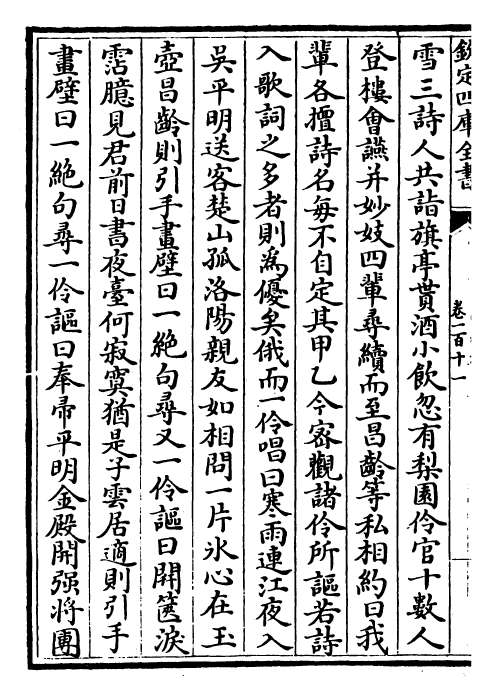 欽定四庫全書
卷一百十一
雪三詩人共詣旗亭貰酒小飲忽有梨園伶官十數人
登樓會讌并妙妓四輩尋續而至昌齡等私相約曰我
輩各擅詩名每不自定其甲乙今宻觀諸伶所謳若詩
入歌詞之多者則為優矣俄而一伶唱曰寒雨連江夜入
吳平明送客楚山孤洛陽親友如相問一片氷心在玉
壺昌齡則引手畫壁曰一絶句尋又一伶謳曰開篋淚
霑臆見君前日書夜臺何寂寞猶是子雲居適則引手
畫璧曰一絶句尋一伶謳曰奉帚平明金殿開强將團